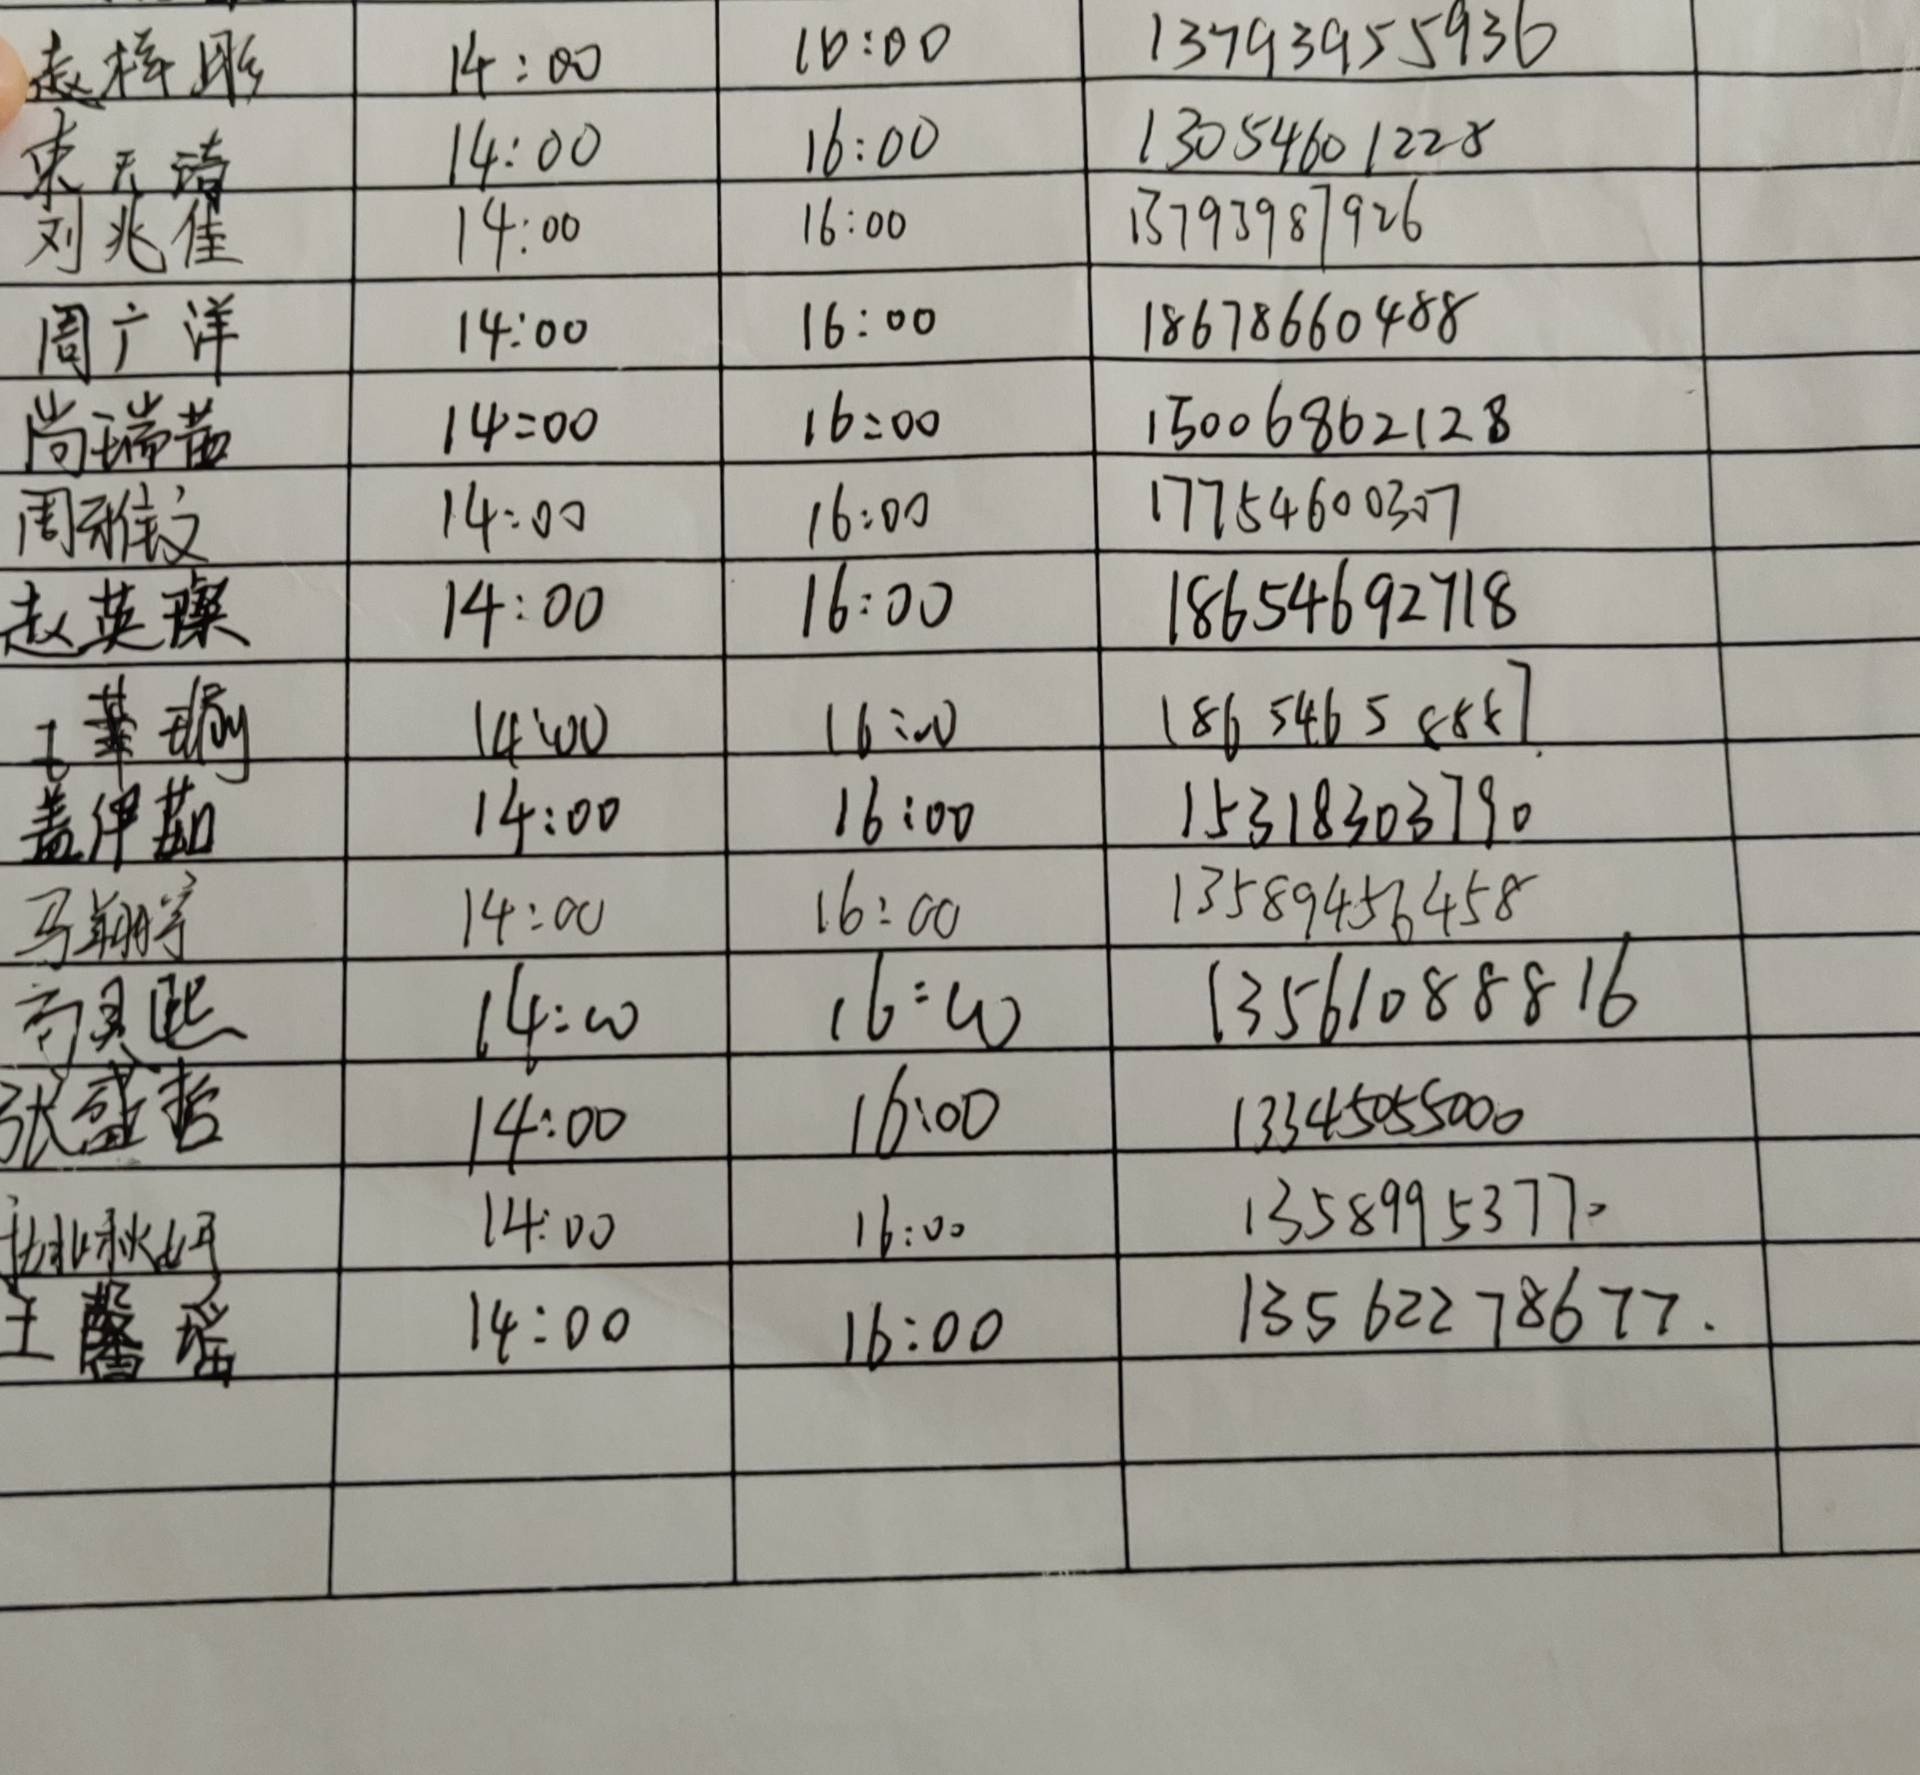 赵梓彤 14:00 16:00 13793955936
宋天 14:00 16:00 13054601228
刘兆佳 14:00 16:00 13793987926
周广洋 14:00 16:00 18678660488
尚瑞茹 14:00 16:00 15006862128
周雅文 14:00 16:00 17754600307
赵英璨 14:00 16:00 18654692718
王 14:00 16:00 18654658887
盖伊茹 14:00 16:00 15318303790
马翔宇 14:00 16:00 13589456458
熙 14:00 16:00 13561088816
张盛哲 14:00 16:00 13345055000
姚秋妤 14:00 16:00 13589953770
王馨瑶 14:00 16:00 13562278677.